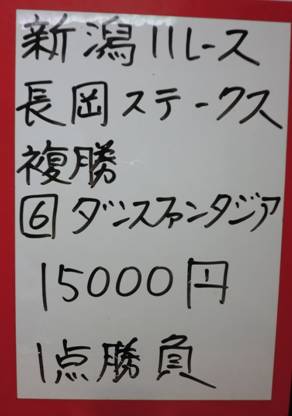 新潟11レース
長岡ステークス
複勝
6 ダンスファンタジア
15000円
1点勝負